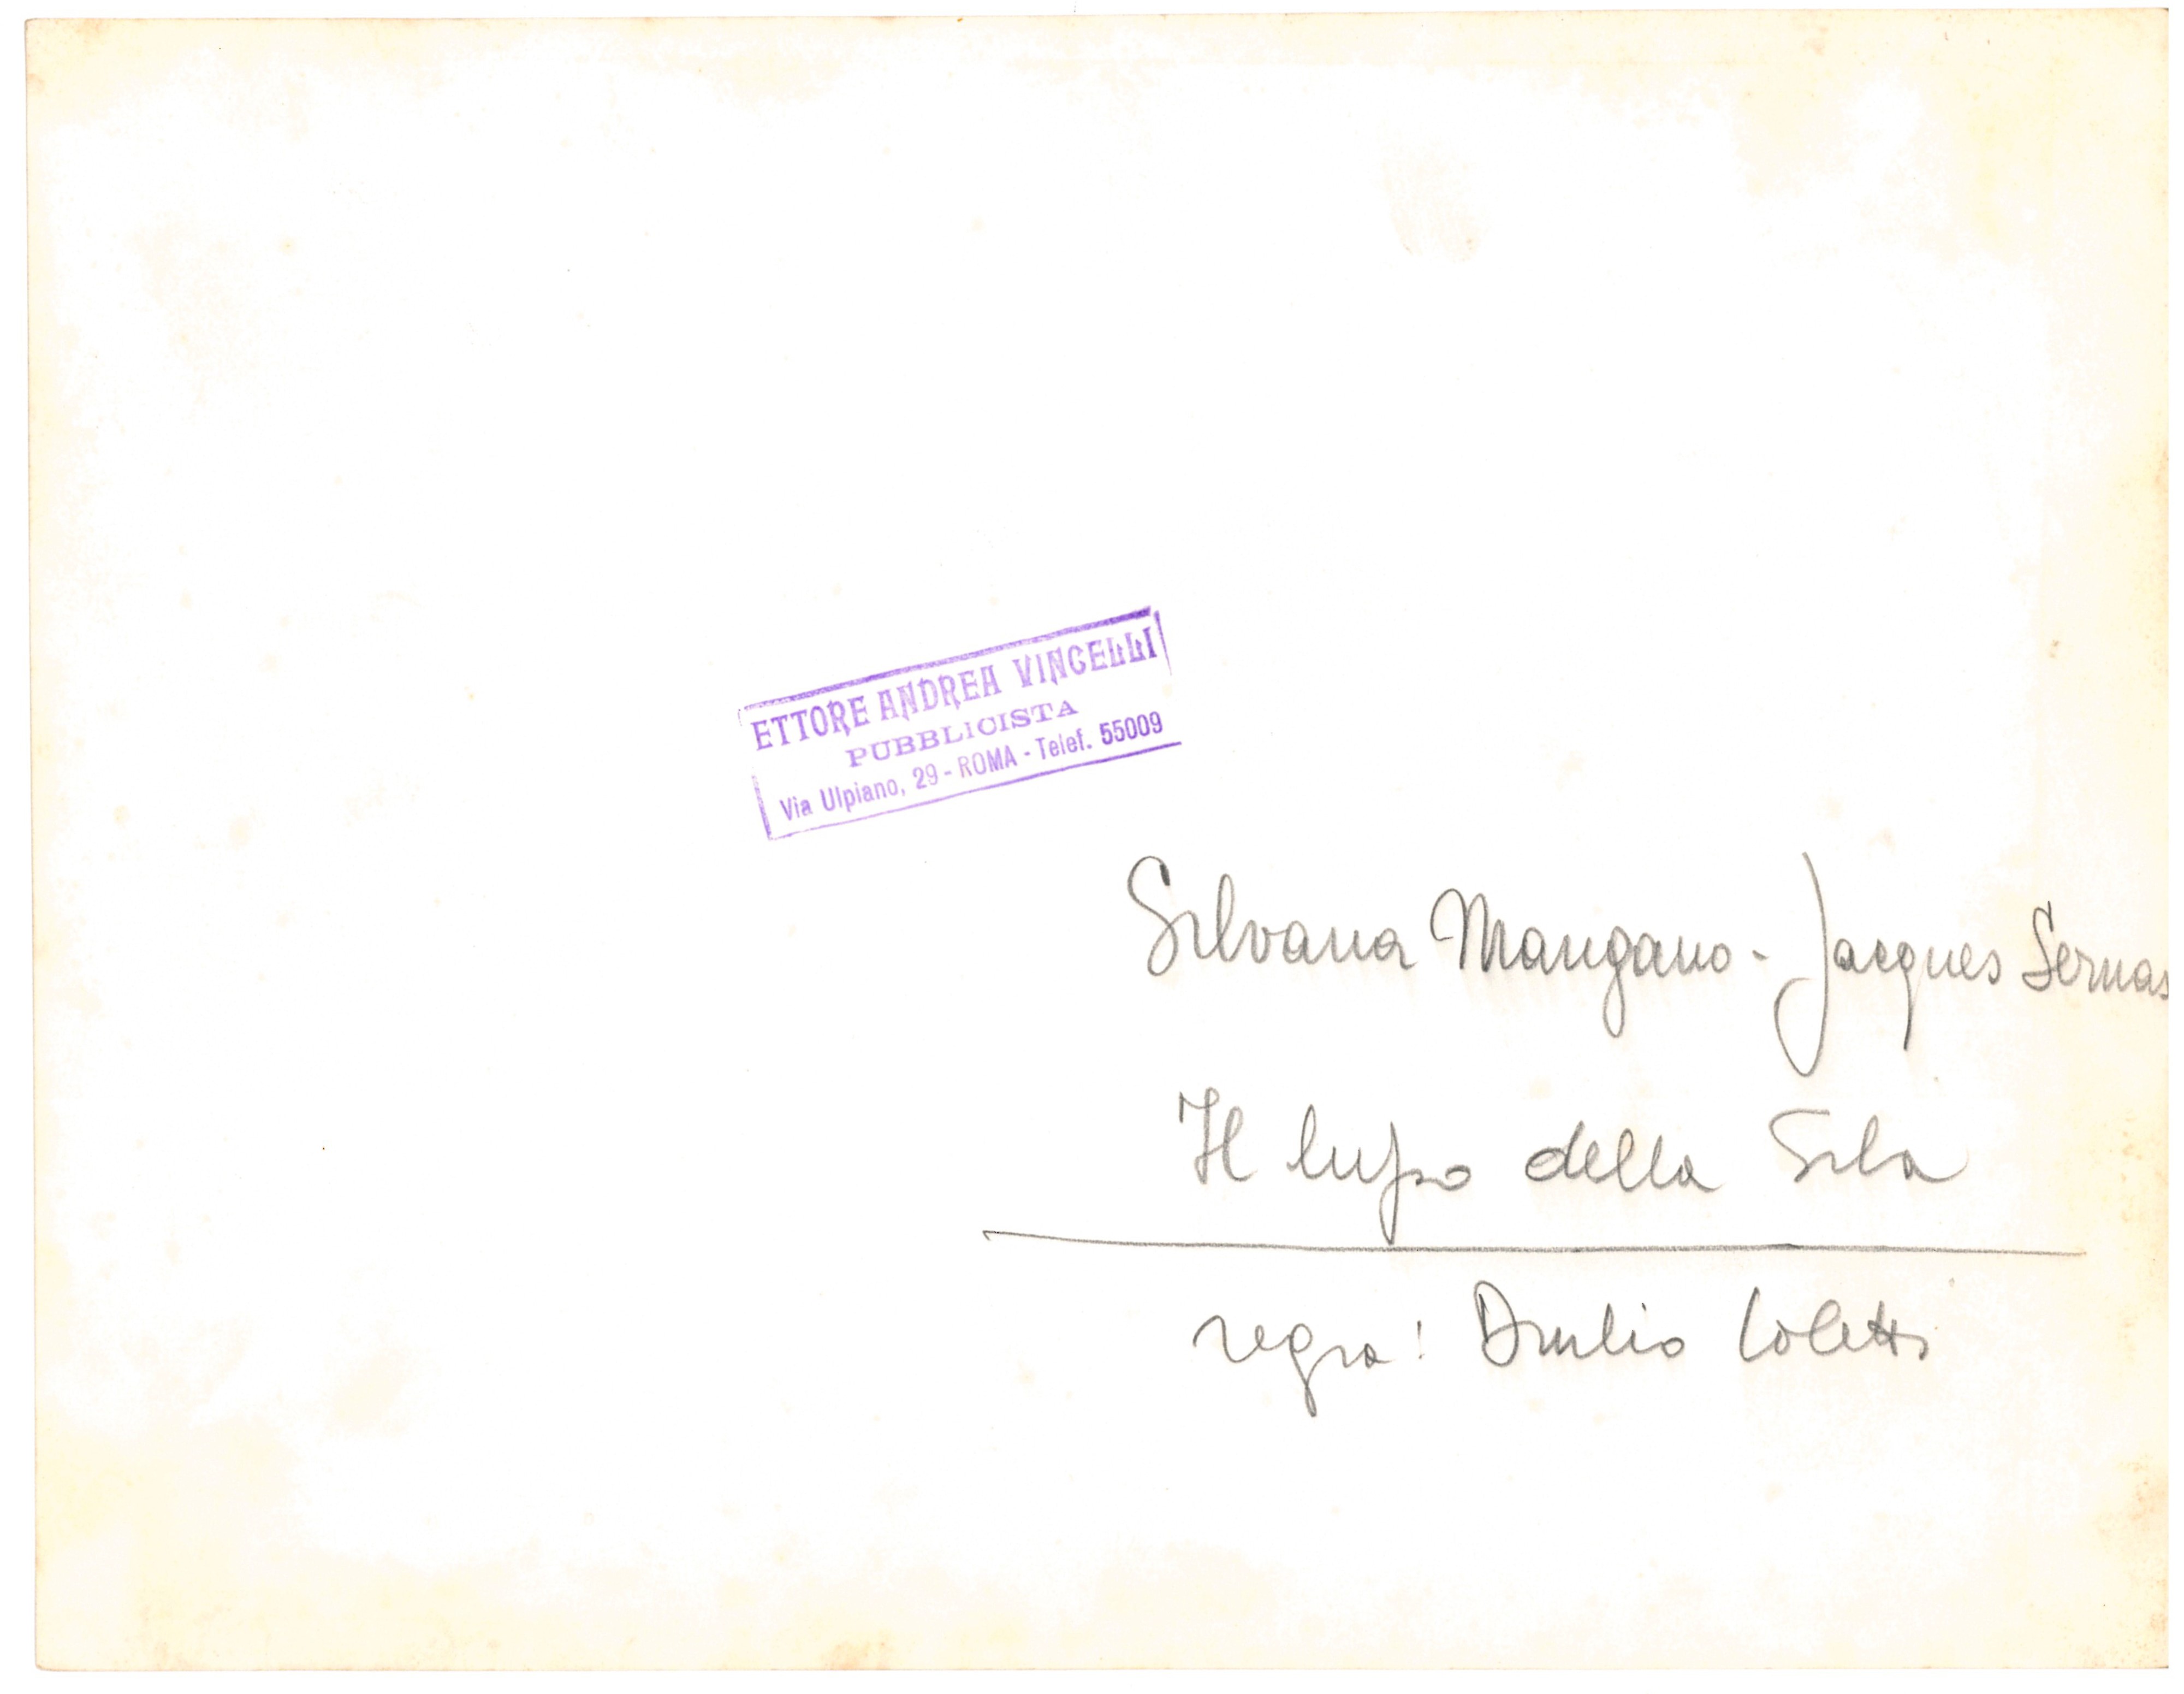 ETTORE ANDREA VINCELLI
PUBBLICISTA
Via Ulpiano, 29 - ROMA - Telef. 55009
Silvana Mangano - Jacques Sernas
Il lupo della Sila
regia: Duilio Coletti